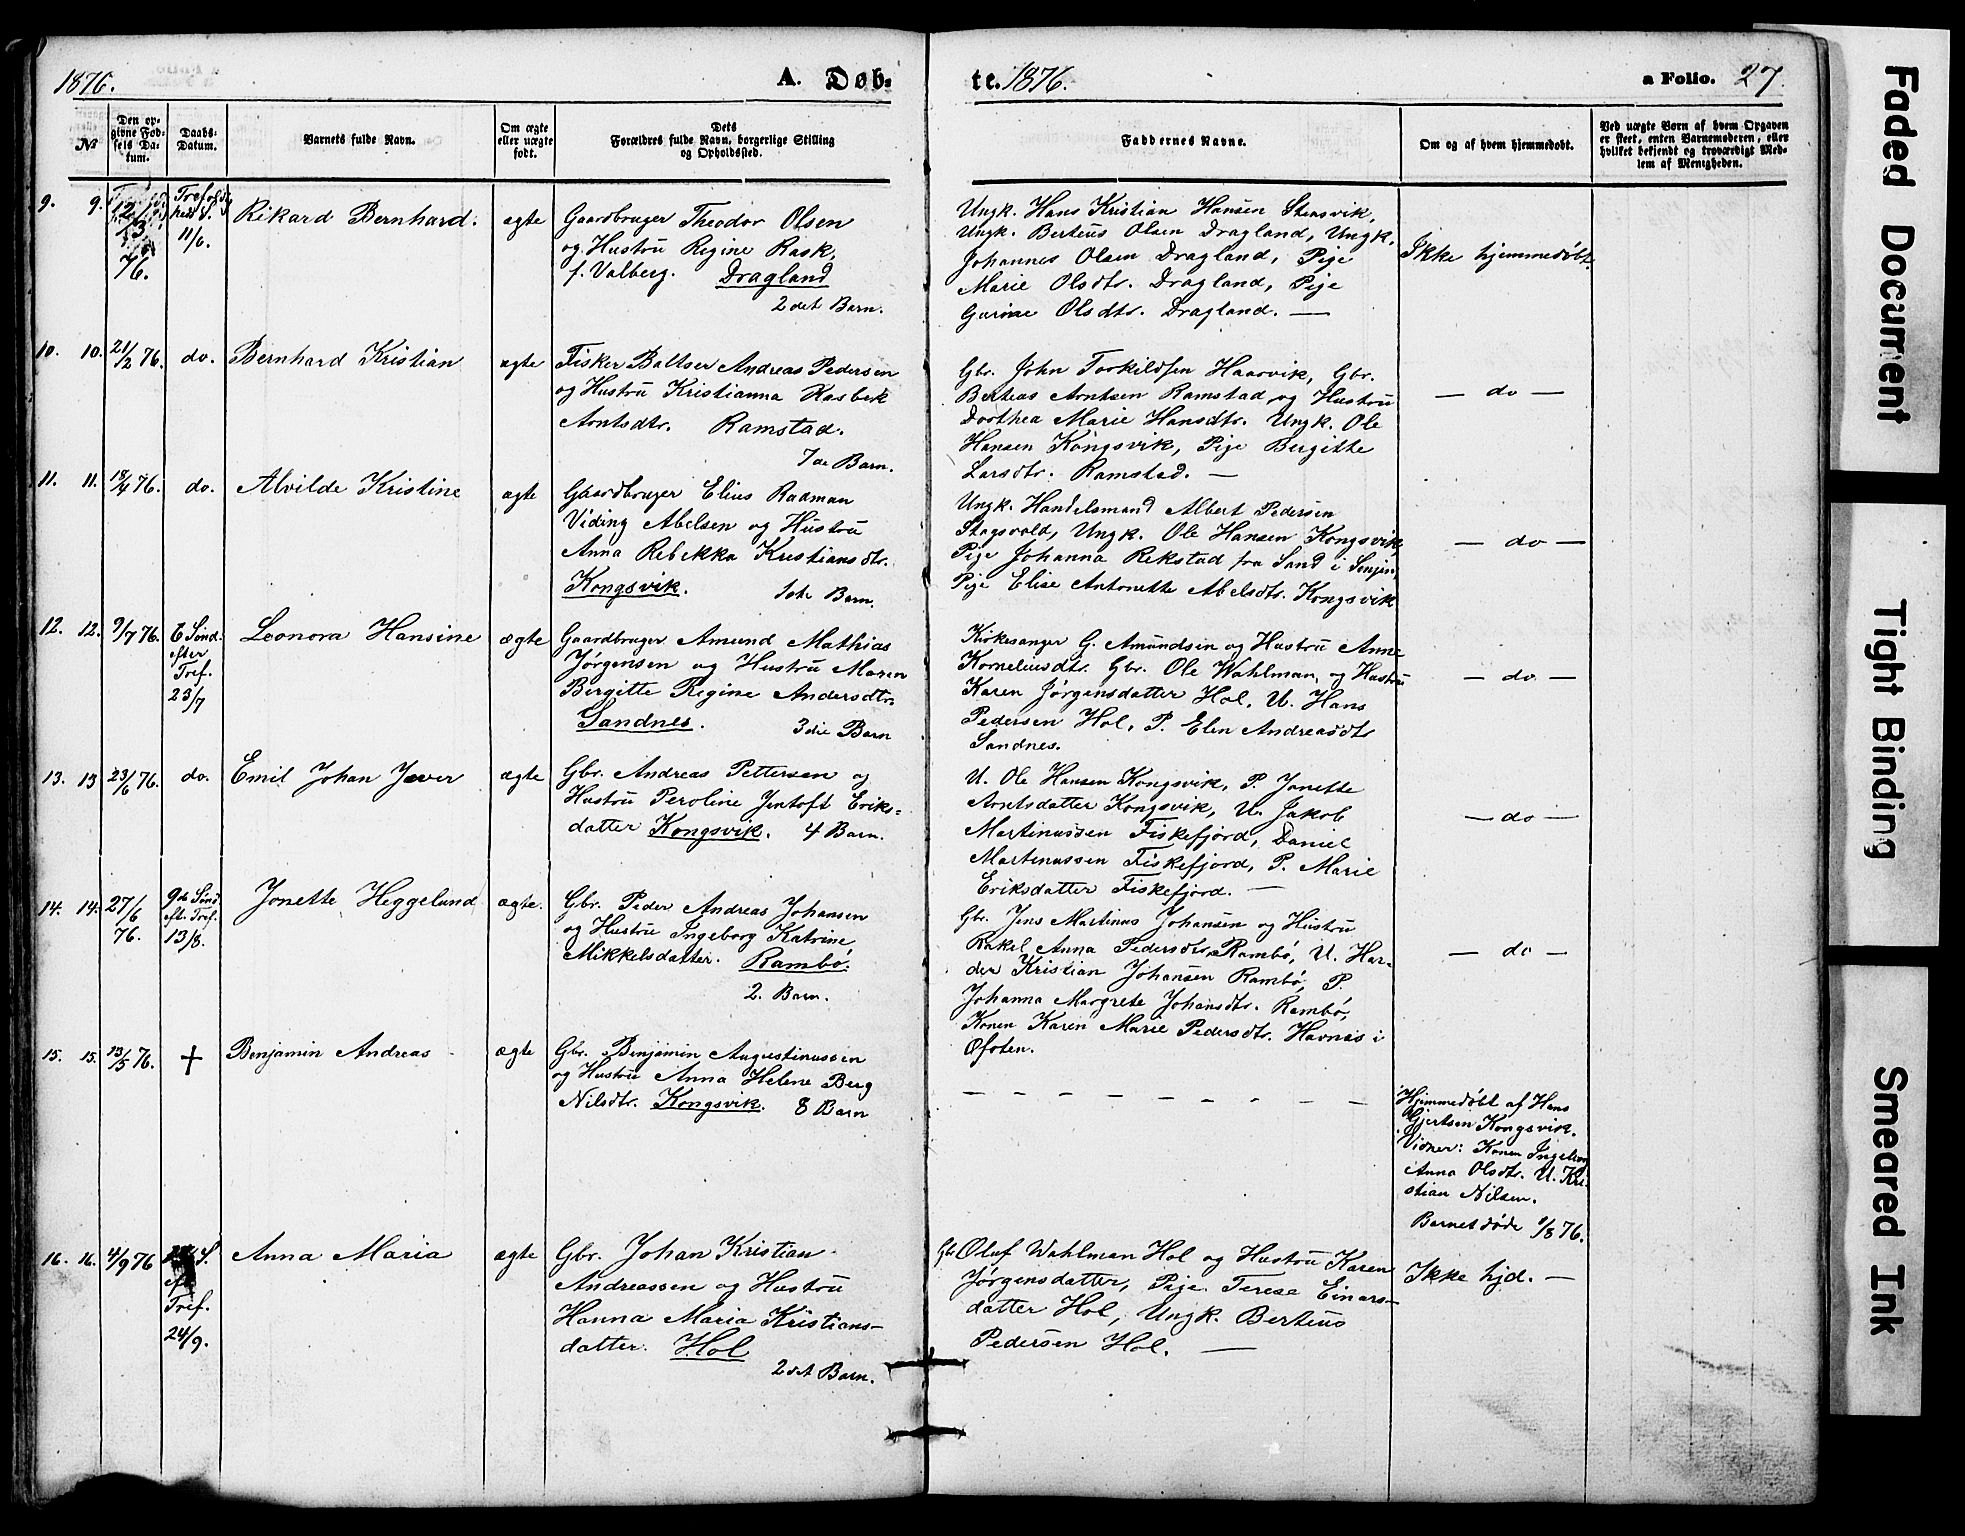 1876.
A. Døb-
te. 1876.
a Folio. 27.
№
Den op-
givne Fød-
sels Da-
tum.
Daabs-
Datum.
Barnets fulde Navn.
Om ægte
eller uægte
født.
Dets
Forældres fulde Navn, borgerlige Stilling
og Opholdssted.
Faddernes Navne.
Om og af hvem hjemmedøbt.
Ved uægte Børn af hvem Opgaven
er skeet, enten Barnemoderen, eller
hvilket bekjendt og troværdigt Med-
lem af Menigheden.
9. 9.
76.
11/6.
Rikard Bernhard.
ægte
Gaardbruger Theodor Olsen
og Hustru Regine Rask,
f. Valberg. Dragland
2det Barn.
Ungk. Hans Kristian Hansen Stensvik,
Ungk. Berteus Olsen Dragland, Ungk.
Johannes Olsen Dragland, Pige
Marie Olsdtr. Dragland, Pige
Gurine Olsdtr. Dragland. —
Ikke hjemmedøbt.
10. 10. 21/2 76. do. Bernhard Kristian
ægte
Fisker Baltser Andreas Pedersen
og Hustru Kristianna Hasbek
Arntsdtr. Ramstad.
7de Barn.
Gbr. John Torkildsen Haarvik, Gbr.
Berteas Arntsen Ramstad og Hustru
Dorthea Marie Hansdtr. Ungk. Ole
Hansen Kongsvik, Pige Bergitte
Larsdtr. Ramstad. —
— do —
11. 11. 18/4 76. do. Alvilde Kristine
ægte
Gaardbruger Elius Radman
Viding Abelsen og Hustru
Anna Rebekka Kristiansdtr.
Kongsvik. 1ste Barn.
Ungk. Handelsmand Albert Pedersen
Stagsvold, Ungk. Ole Hansen Kongsvik
Pige Johanna Rekstad fra Sand i Senjen,
Pige Elise Antonette Abelsdtr. Kongsvik
— do —
12. 12. 9/7 76. 6 Sønd.
efter
Tref.
23/7
Leonora Hansine
ægte
Gaardbruger Amund Mathias
Jørgensen og Hustru Maren
Bergitte Regine Andersdtr.
Sandnes. 3die Barn
Kirkesanger G. Amundsen og Hustru Anne
Korneliusdtr. Gbr. Ole Wahlman, og Hustru
Karen Jørgensdatter Hol, U. Hans
Pedersen Hol, P. Elen Andreasdtr
Sandnes.
— do —
13. 13 23/6 76. do. Emil Johan Jever
ægte
Gbr. Andreas Pettersen og
Hustru Peroline Jentoft Eriks-
datter Kongsvik. 4 Barn.
U. Ole Hansen Kongsvik, P. Jonette
Arntsdatter Kongsvik, U. Jakob
Martinussen Fiskefjord, Daniel
Martinussen Fiskefjord, P. Marie
Eriksdatter Fiskefjord. —
— do —
14. 14. 27/6
76.
9de Sønd
eft. Tref.
13/8.
Jonette Heggelund
ægte.
Gbr. Peder Andreas Johansen
og Hustru Ingeborg Katrine,
Mikkelsdatter. Rambø.
2. Barn.
Gbr. Jens Martinus Johansen og Hustru
Rakel Anna Pedersdtr. Rambø, U. Har-
der Kristian Johansen Rambø, P.
Johanna Margrete Johansdtr. Rambø,
Konen Karen Marie Pedersdtr. Havnæs i
Ofoten.
— do —
15. 15. 13/5 76. + Benjamin Andreas
ægte
Gbr. Benjamin Augustinussen
og Hustru Anna Helene Berg
Nilsdtr. Kongsvik. 8 Barn
— — — — — — — — —
Hjemmedøbt af Hans
Gjertsen Kongsvik.
Vidner: Konen Ingeborg
Anna Olsdtr. U. Kri-
stian Nilsen.
Barnet døde 1/8 76.
16. 16. 4/9 76
S.
eft
Tref.
24/9.
Anna Maria
ægte
Gbr. Johan Kristian
Andreassen og Hustru
Hanna Maria Kristians-
datter. Hol
2det Barn.
Gbr Oluf Wahlman Hol og Hustru Karen
Jørgensdatter, Pige Terese Einars-
datter Hol, Ungk. Berteus
Pedersen Hol. —
Ikke hjd. —
Faded Document
Tight Binding
Smeared Ink